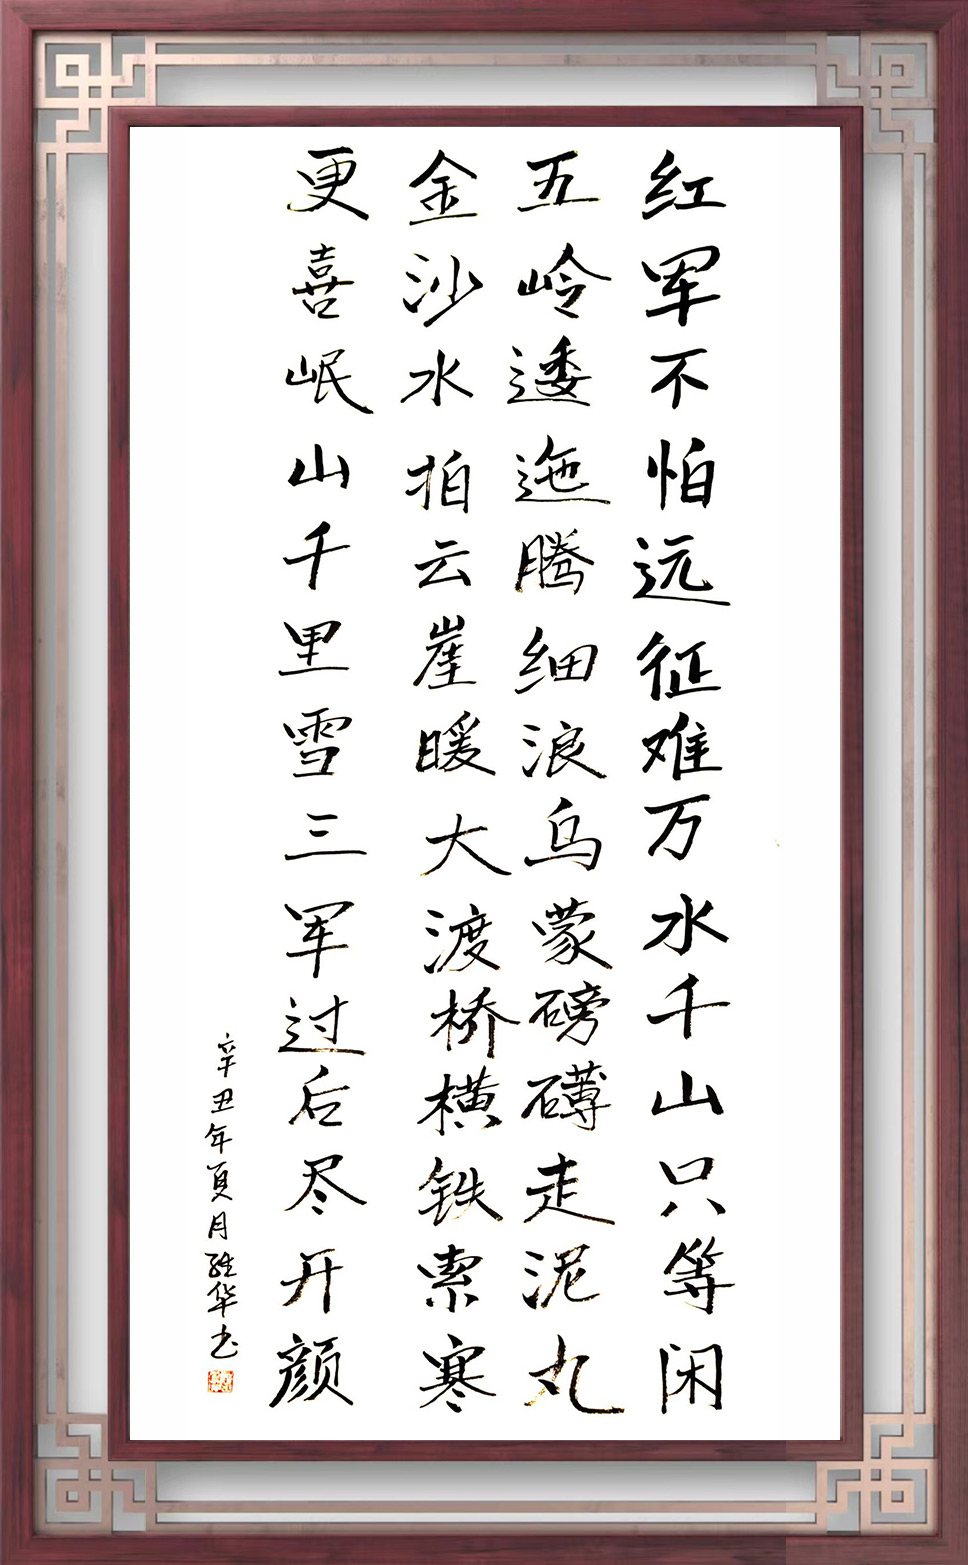 红军不怕远征难万水千山只等闲
五岭逶迤腾细浪乌蒙磅礴走泥丸
金沙水拍云崖暖大渡桥横铁索寒
更喜岷山千里雪三军过后尽开颜
辛丑年夏月维华书